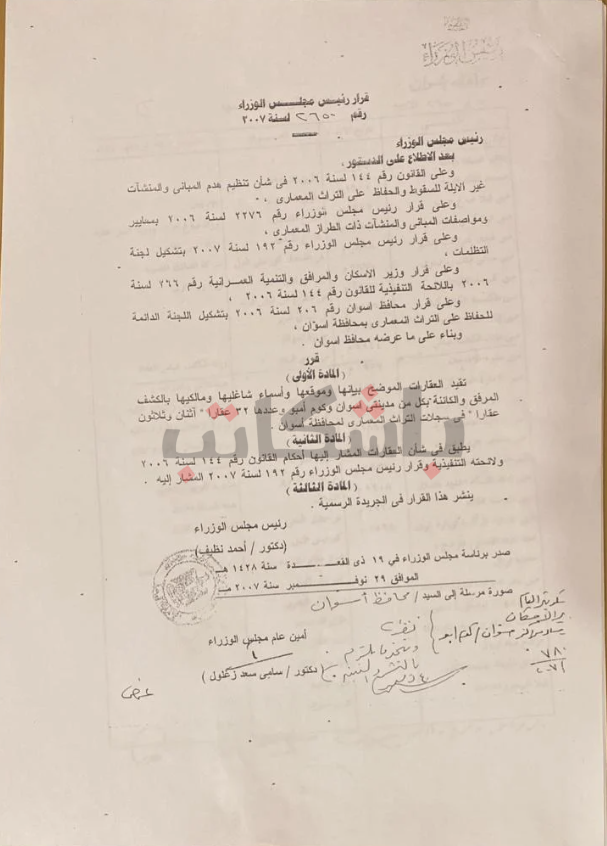 رئيس مجلس الوزراء
قرار رئيس مجلس الوزراء
رقم ٢٦٥٠ لسنة ٢٠٠٧
رئيس مجلس الوزراء
بعد الاطلاع على الدستور ؛
وعلى القانون رقم ١٤٤ لسنة ٢٠٠٦ فى شأن تنظيم هدم المبانى والمنشآت
غير الايلة للسقوط والحفاظ على التراث المعمارى ،
وعلى قرار رئيس مجلس الوزراء رقم ٢٢٧٦ لسنة ٢٠٠٦ بمعايير
ومواصفات المبانى والمنشآت ذات الطراز المعمارى ،
وعلى قرار رئيس مجلس الوزراء رقم ١٩٢ لسنة ٢٠٠٧ بتشكيل لجنة
التظلمات ،
وعلى قرار وزير الاسكان والمرافق والتنمية العمرانية رقم ٢٦٦ لسنة
٢٠٠٦ باللائحة التنفيذية للقانون رقم ١٤٤ لسنة ٢٠٠٦ ،
وعلى قرار محافظ اسوان رقم ٢٠٦ لسنة ٢٠٠٦ بتشكيل اللجنة الدائمة
للحفاظ على التراث المعمارى بمحافظة اسوان ،
وبناء على ما عرضه محافظ اسوان .
قرر
(المادة الأولى)
تقيد العقارات الموضح بيانها وموقعها وأسماء شاغليها ومالكيها بالكشف
المرفق والكائنة بكل من مدينتى أسوان وكوم أمبو وعددها ٣٢ عقارا" أثنان وثلاثون
عقارا" فى سجلات التراث المعمارى لمحافظة أسوان .
باشكاتب
(المادة الثانية)
يطبق فى شأن العقارات المشار إليها أحكام القانون رقم ١٤٤ لسنة ٢٠٠٦
ولائحته التنفيذية وقرار رئيس مجلس الوزراء رقم ١٩٢ لسنة ٢٠٠٧ المشار إليه .
(المادة الثالثة)
ينشر هذا القرار فى الجريدة الرسمية .
رئيس مجلس الوزراء
(دكتور / أحمد نظيف)
صدر برئاسة مجلس الوزراء في ١٩ ذى القعـــدة سنة ١٤٢٨ هـ
الموافق ٢٩ نوفـــمبر سنة ٢٠٠٧ مـ
صورة مرسلة إلى السيد / محافظ أسوان
أمين عام مجلس الوزراء
(دكتور / سامى سعد زغلول)